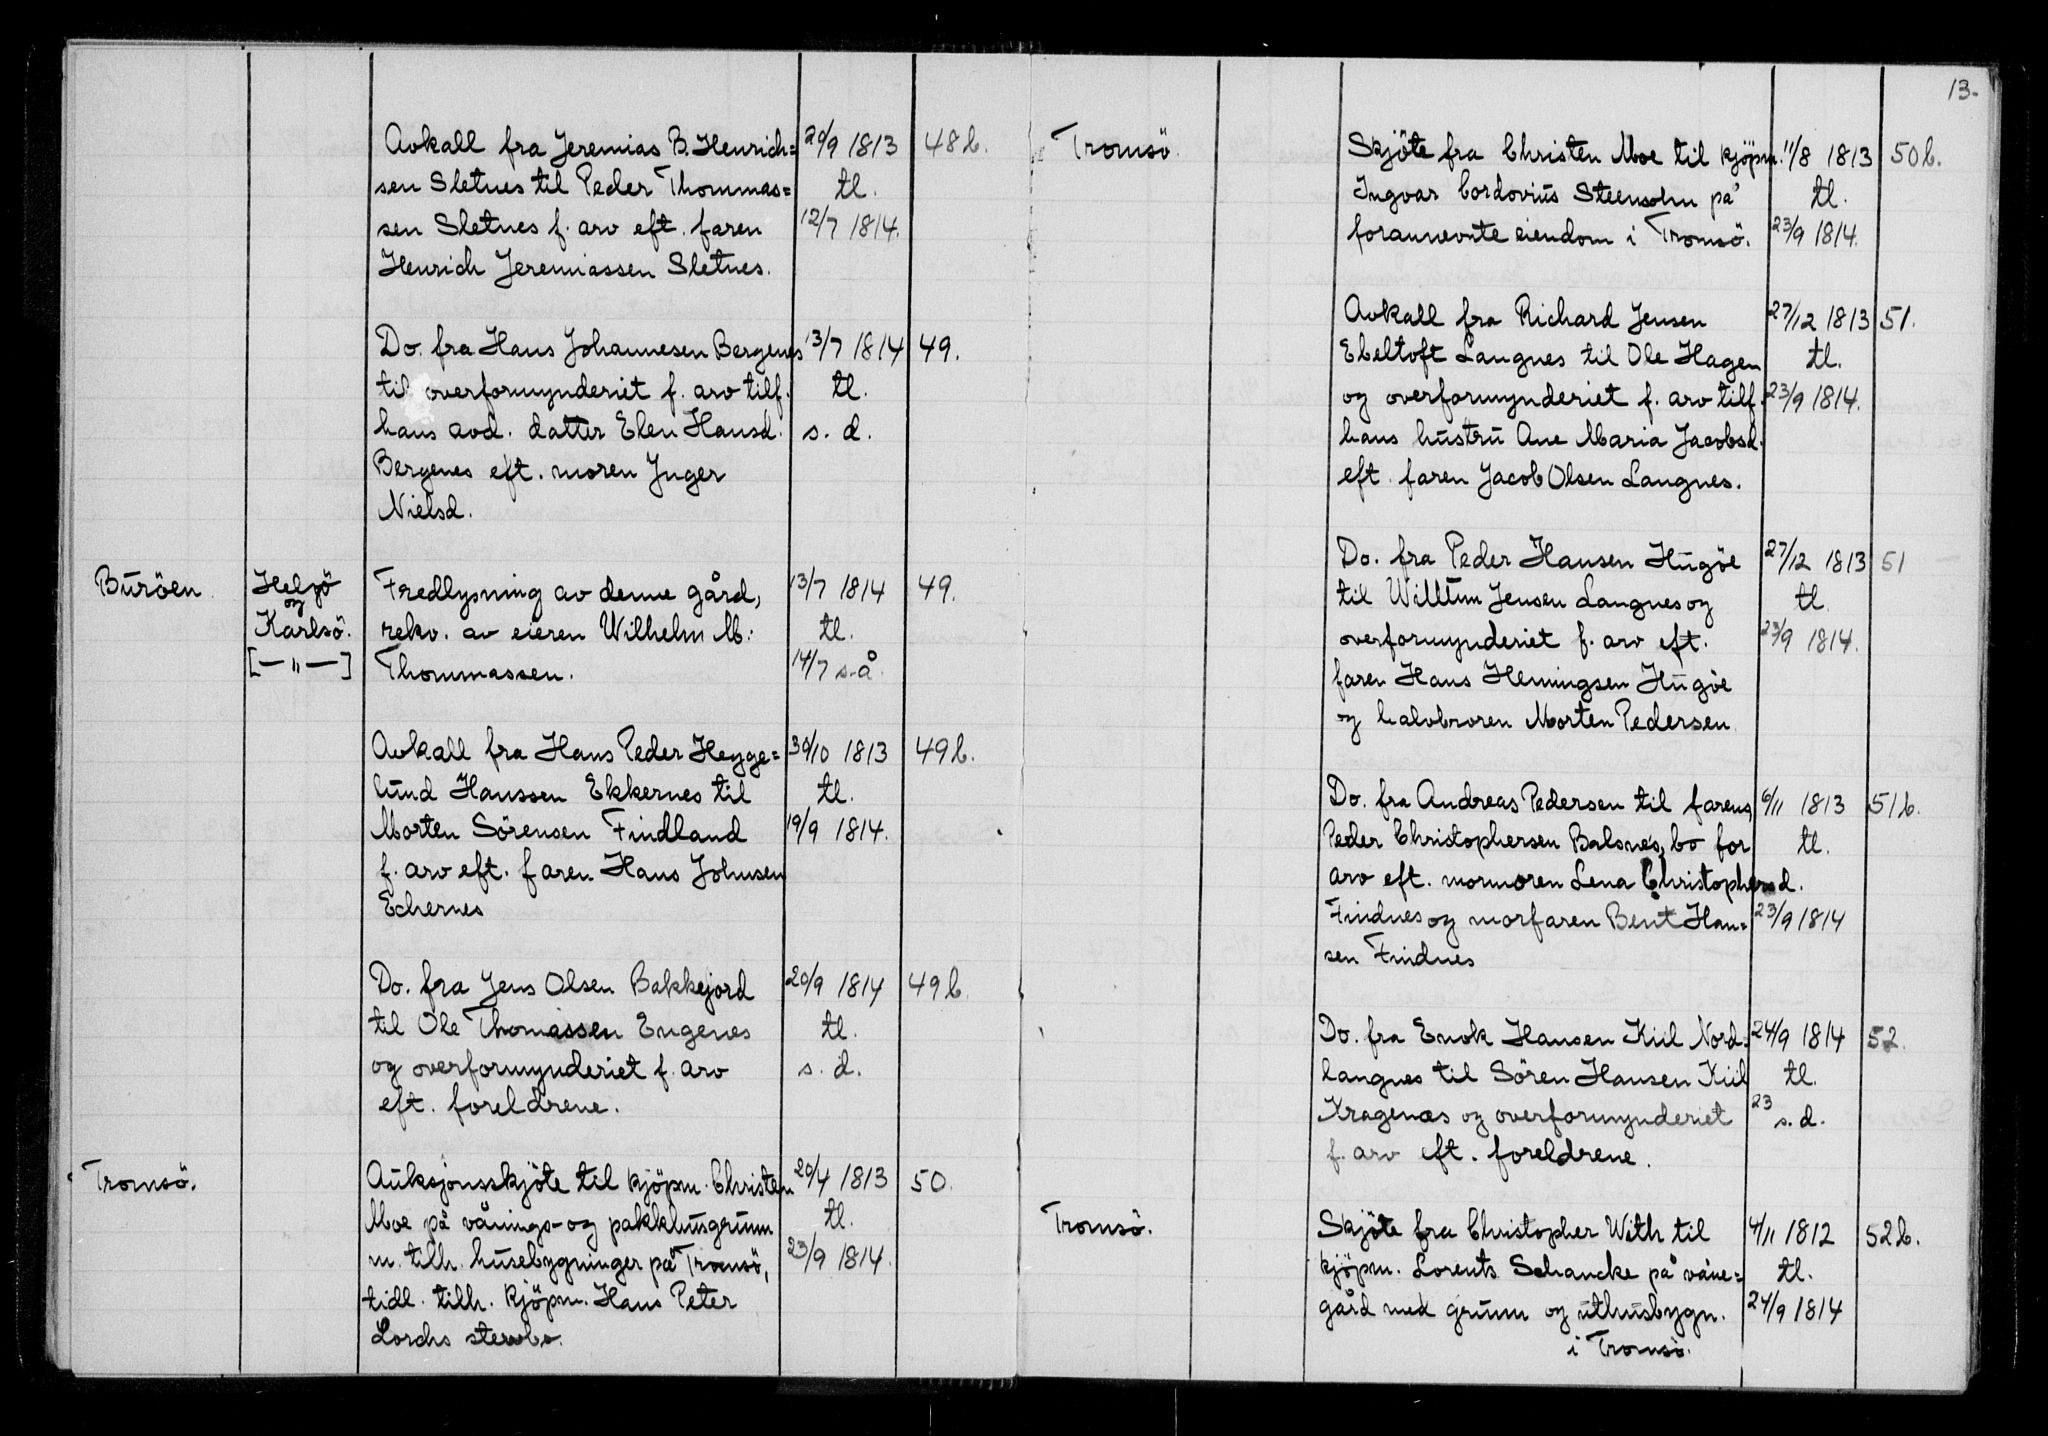 Avkall fra Jeremias B. Henrich= 20/9 1813 48b.
sen Sletnes til Peder Thommas= tl.
sen Sletnes f. arv eft. faren 12/7 1814.
Henrich Jeremiassen Sletnes.
Do. fra Hans Johannesen Bergenes 13/7 1814 49.
til overformynderiet f. arv tilf. tl.
hans avd. datter Elen Hansd. s. d.
Bergenes eft. moren Inger
Nielsd.
Buröen. Helgö Fredlysning av denne gård, 13/7 1814 49.
og
Karlsö. rekv. av eieren Wilhelm M. tl.
[—"—] Thommassen. 14/7 s.å.
Avkall fra Hans Peder Heyge= 30/10 1813 49b.
lund Hanssen Ekkernes til tl.
Morten Sörensen Findland 19/9 1814.
f. arv eft. faren Hans Johnsen
Echernes
Do. fra Jens Olsen Bakkejord 20/9 1814 49b.
til Ole Thomassen Engenes tl.
og overformynderiet f. arv s. d.
eft. foreldrene.
Tromsö. Auksjonsskjöte til kjöpm. Christen 20/4 1813 50.
Moe på vånings- og pakkhusgrunn tl.
m. tilh. husebygninger på Tromsö, 23/9 1814.
tidl. tilh. kjöpm. Hans Peter
Lorchs stervbo.
13.
Tromsö. Skjöte fra Christen Moe til kjöpm. 11/8 1813 50b.
Ingvar Cordovius Steensohn på tl.
forannevnte eiendom i Tromsö. 23/9 1814.
Avkall fra Richard Jensen 27/12 1813 51.
Ebeltoft Langnes til Ole Hagen tl.
og overformynderiet f. arv tilf. 23/9 1814.
hans hustru Ane Maria Jacobsd.
eft. faren Jacob Olsen Langnes.
Do. fra Peder Hansen Hugöe 27/12 1813 51
til Willum Jensen Langnes og tl.
overformynderiet f. arv eft. 23/9 1814.
faren Hans Hemingsen Hugöe
og halvbroren Morten Pedersen
Do. fra Andreas Pedersen til farens 6/11 1813 51b.
Peder Christophersen Balsnes, bo for tl.
arv eft. mormoren Lena Christophersd.
Findnes og morfaren Bent Han= 23/9 1814
sen Findnes
Do. fra Enok Hansen Kiil Nord= 24/9 1814 52.
langnes til Sören Hansen Kiil tl.
Kragenæs og overformynderiet 23 s. d.
f. arv eft. foreldrene.
Tromsö. Skjöte fra Christopher With til 4/11 1812 52b.
kjöpm. Lorents Schancke på våne= tl.
gård med grunn og uthusbygn. 24/9 1814
i Tromsö.